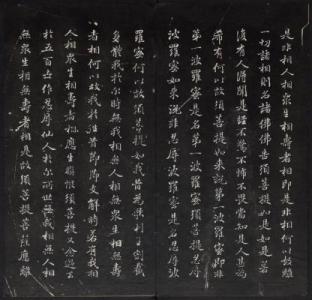 是非相人相眾生相壽者相即是非相何以故離
一切諸相則名諸佛佛告須菩提如是如是若
復有人得聞是經不驚不怖不畏當知是人甚為
希有何以故須菩提如來說第一波羅蜜即非
第一波羅蜜是名第一波羅蜜須菩提忍辱
波羅蜜如來說非忍辱波羅蜜是名忍辱波
羅蜜何以故須菩提如我昔為歌利王割截
身體我於爾時無我相無人相無眾生相無壽
者相何以故我於往昔節節支解時若有我相
人相眾生相壽者相應生瞋恨須菩提又念過去
於五百世作忍辱仙人於爾所世無我相無人相
無眾生相無壽者相是故須菩提菩薩應離